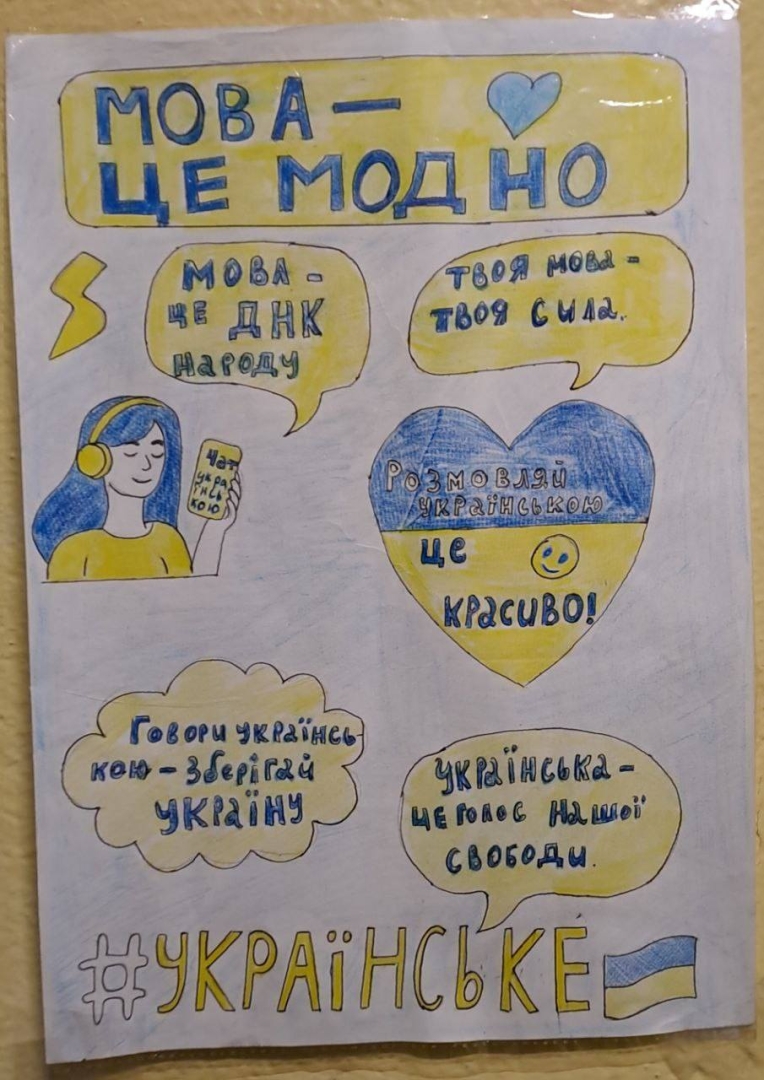 МОВА —
ЦЕ МОДНО
МОВА -
ЦЕ ДНК
НАРОДУ
ТВОЯ МОВА -
ТВОЯ СИЛА.
Чат
укра
їнсь
кою
Розмовляй
українською
це
красиво!
Говори українсь
кою - зберігай
Україну
Українська -
це голос нашої
свободи.
#УКРАЇНСЬКЕ